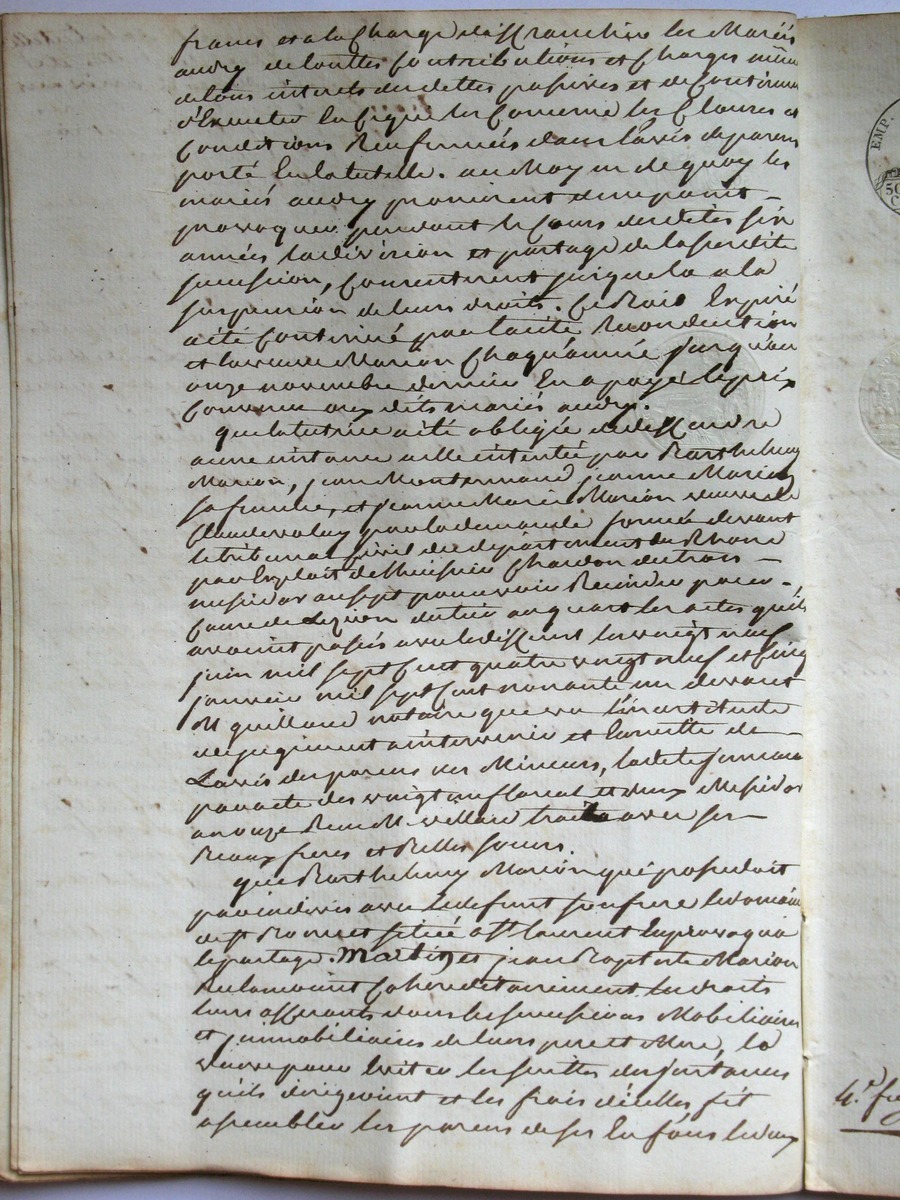 francs et a la Charge d'affranchir les Mariés
audry de touttes Contributions et Charges même
de tous interets des dettes passives et de Continuer
d'Executer En ce qui les Concerne les Clauses et
Conditions Renfermées dans l'avis de parens
porté En la tutelle. au Moyen de quoy les
mariés audry promirent de ne point
provoquer pendant le Cours desdites six
années la division et partage de la susdite
sucession, Consentirent jusques la a la
suspension de leurs droits. Ce Bail Expiré
a été Continué par tacite Reconduction
et la veuve Marion Chaqu'année jusqu'au
onze novembre dernier En a payé le prix
Convenu aux dits mariés audry.
que la tutrice a été obligée de deffendre
a une instance a elle intentée par Barthelemy
Marion, jean Monternaud, jeanne Marion
sa femme, et jeanne Marie Marion veuve de
Claude valuy par la demande formée devant
le tribunal Civil du departement du Rhone
par Exploit de l'huissier Chardon du trois
messidor an sept pour voir Rescinder pour
Cause de Lezion du tier au quart les actes qu'ils
avoient passés avec le deffunt les vingt neuf
juin mil sept Cent quatre vingt neuf et Cinq
janvier mil sept Cent nonante un devant
M guillaud notaire que vu l'incertitude
du jugement a intervenir et Ensuitte de
L'avis des parens des Mineurs, ladite
par acte des vingt un floreal et deux Messidor
an onze Reçu M traita avec ses
Beaux freres et Belles sœurs.
que Barthelemy Marion qui possedoit
par indivis avec Ledefunt son frere le domaine
de et situé a St laurent En provoqua
le partage. Martin et jean Baptiste Marion
Reclamoient Cohereditairement les droits
leurs afferants dans les sucessions Mobiliaires
et jmmobiliaires de leurs pere et Mere, la
veuve pour Eviter les suittes des jnstances
qu'ils dirigeoient et les frais d'icelles fit
assembler les parens de ses Enfans les deux
EMP.
50
C
4.e